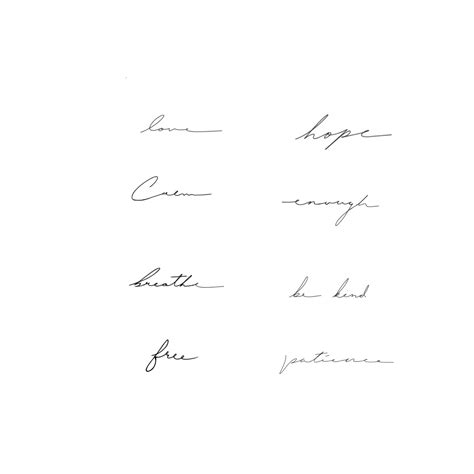 love
hope
Calm
enough
breathe
be kind
free
patience